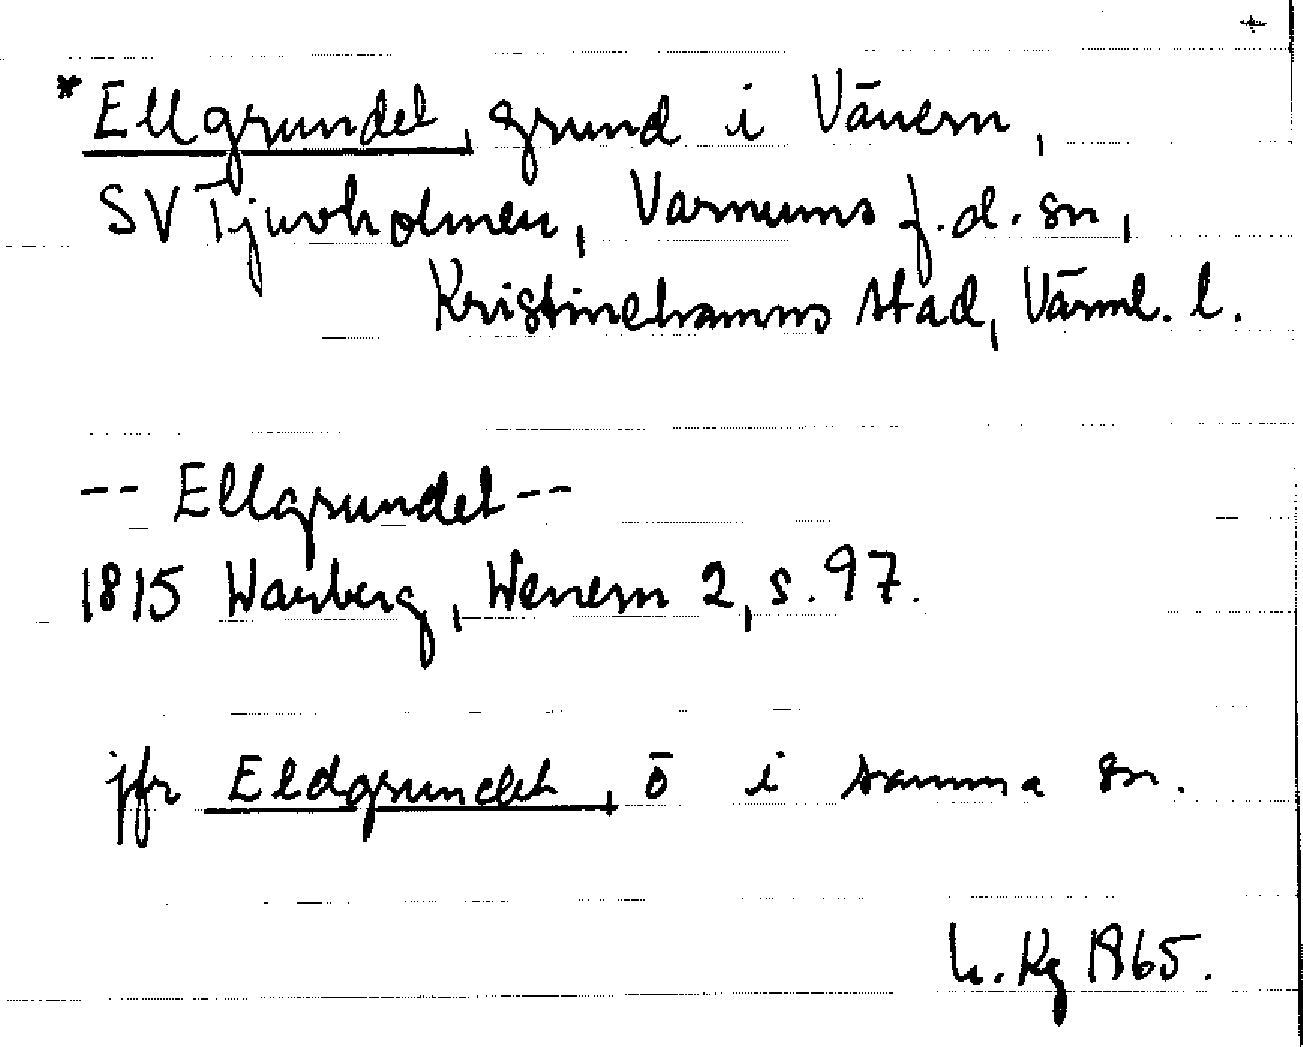 *Ellgrundet, grund i Vänern,
SV Tjuvholmen, Varnums f.d. sn,
Kristinehamns stad, Värml. l.
-- Ellgrundet --
1815 Warberg, Wenern 2, s. 97.
jfr Eldgrundet, ö i samma sn.
h. Kg 1965.